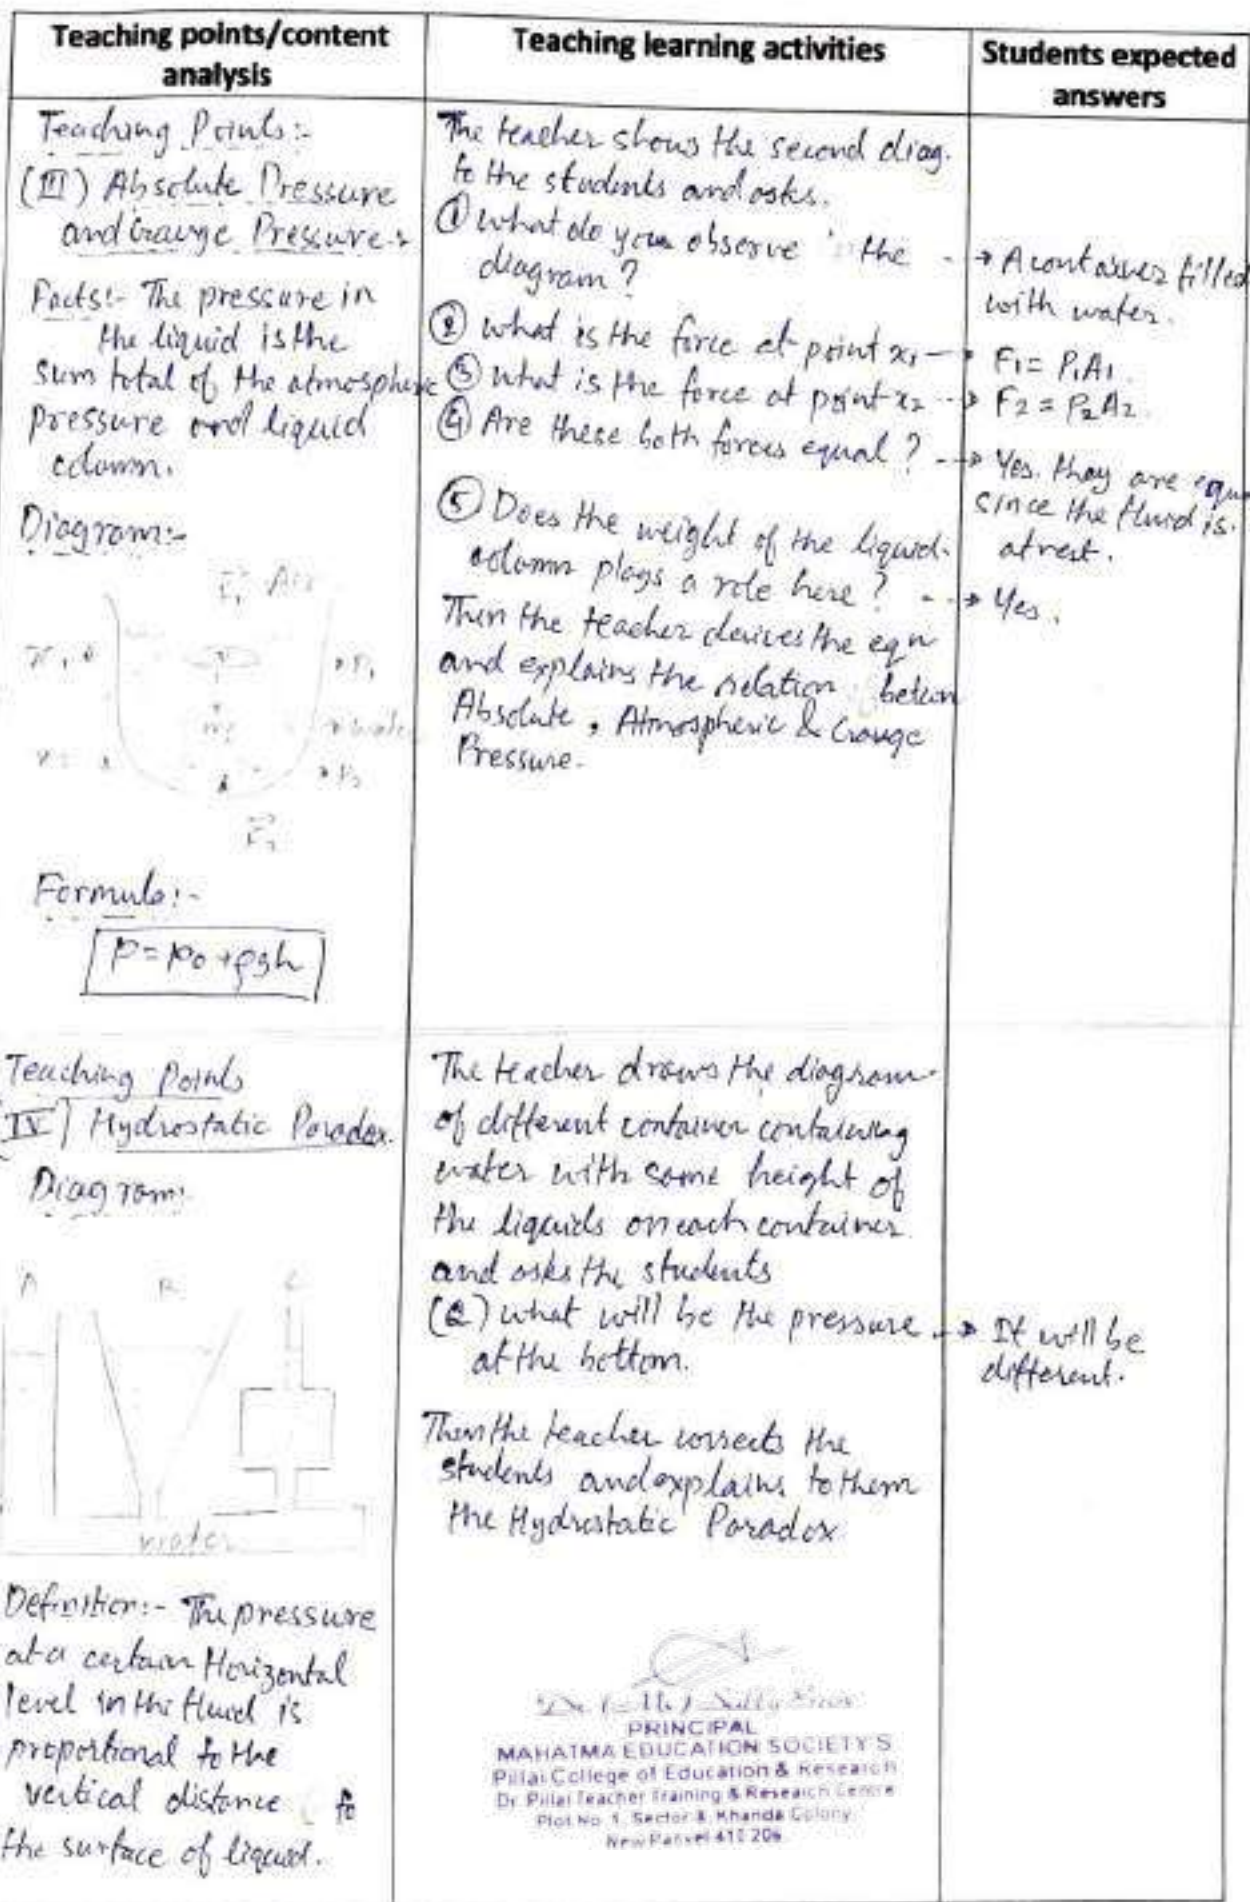 Teaching points/content
analysis
Teaching learning activities
Students expected
answers
Teaching Points:-
(III) Absolute Pressure
and Gauge Pressure:-
Facts:- The pressure in
the liquid is the
sum total of the atmospheric
pressure and liquid
column.
Diagram:-
F₁ Air
x₁
P₁
mg
water
P₂
F₂
Formula:-
P = P₀ + ρgh
The teacher shows the second diag.
to the students and asks.
① What do you observe the
diagram?
② what is the force at point x₁
③ what is the force at point x₂
④ Are these both forces equal?
⑤ Does the weight of the liquid
column plays a role here?
Then the teacher derives the eqn
and explains the relation betwn
Absolute, Atmospheric & Gauge
Pressure.
→ A container filled
with water.
→ F₁ = P₁A₁.
→ F₂ = P₂A₂.
→ Yes. they are equ
since the fluid is
at rest.
→ Yes.
Teaching Points
IV) Hydrostatic Paradox.
Diagram:
A B C
water
Definition:- The pressure
at a certain Horizontal
level in the fluid is
proportional to the
vertical distance to
the surface of liquid.
The teacher draws the diagram
of different container containing
water with same height of
the liquids on each container
and asks the students
(Q) what will be the pressure
at the bottom.
Then the teacher corrects the
students and explains to them
the Hydrostatic Paradox
→ It will be
different.
PRINCIPAL
MAHATMA EDUCATION SOCIETY'S
Pillai College of Education & Research
Dr. Pillai Teacher Training & Research Centre
Plot No. 1, Sector 8, Khanda Colony,
New Panvel 410 206